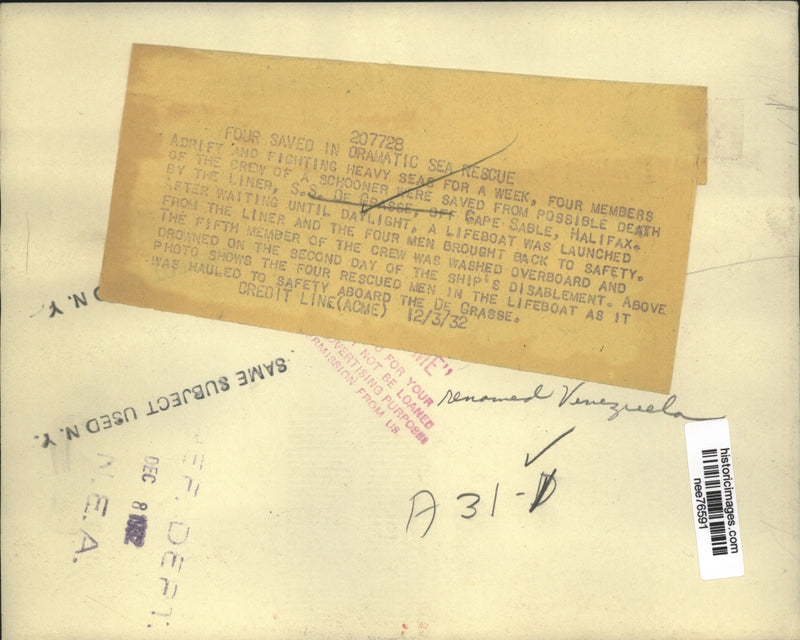 207728
FOUR SAVED IN DRAMATIC SEA RESCUE
ADRIFT AND FIGHTING HEAVY SEAS FOR A WEEK, FOUR MEMBERS
OF THE CREW OF A SCHOONER WERE SAVED FROM POSSIBLE DEATH
BY THE LINER, S.S. DE GRASSE, OFF CAPE SABLE, HALIFAX.
AFTER WAITING UNTIL DAYLIGHT, A LIFEBOAT WAS LAUNCHED
FROM THE LINER AND THE FOUR MEN BROUGHT BACK TO SAFETY.
THE FIFTH MEMBER OF THE CREW WAS WASHED OVERBOARD AND
DROWNED ON THE SECOND DAY OF THE SHIP'S DISABLEMENT. ABOVE
PHOTO SHOWS THE FOUR RESCUED MEN IN THE LIFEBOAT AS IT
WAS HAULED TO SAFETY ABOARD THE DE GRASSE.
CREDIT LINE(ACME) 12/3/32
D N.Y.
SAME SUBJECT USED N.Y.
FOR YOUR
NOT BE LOANED
VERTISING PURPOSES
RMISSION FROM US.
renamed Venezuela
A 31-
EF. DEPT.
DEC 8 1932
N.E.A.
historicimages.com
nee76591